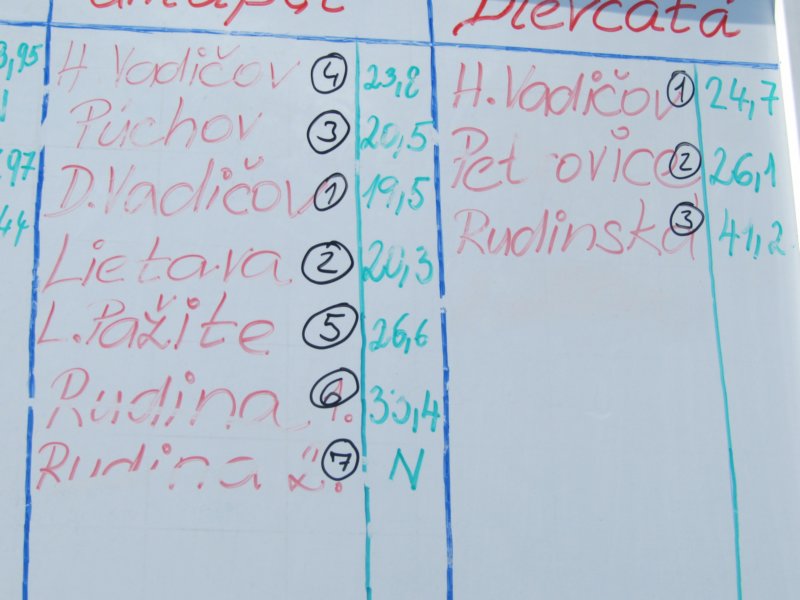 Dievčatá
H Vadičov 4 23,8
Púchov 3 20,5
D.Vadičov 1 19,5
Lietava 2 20,3
L.Pažite 5 26,6
Rudina 6 1. 30,4
Rudina 7 N
H.Vadičov 1 24,7
Pet ovice 2 26,1
Rudinská 3 41,2
3,95
97
44